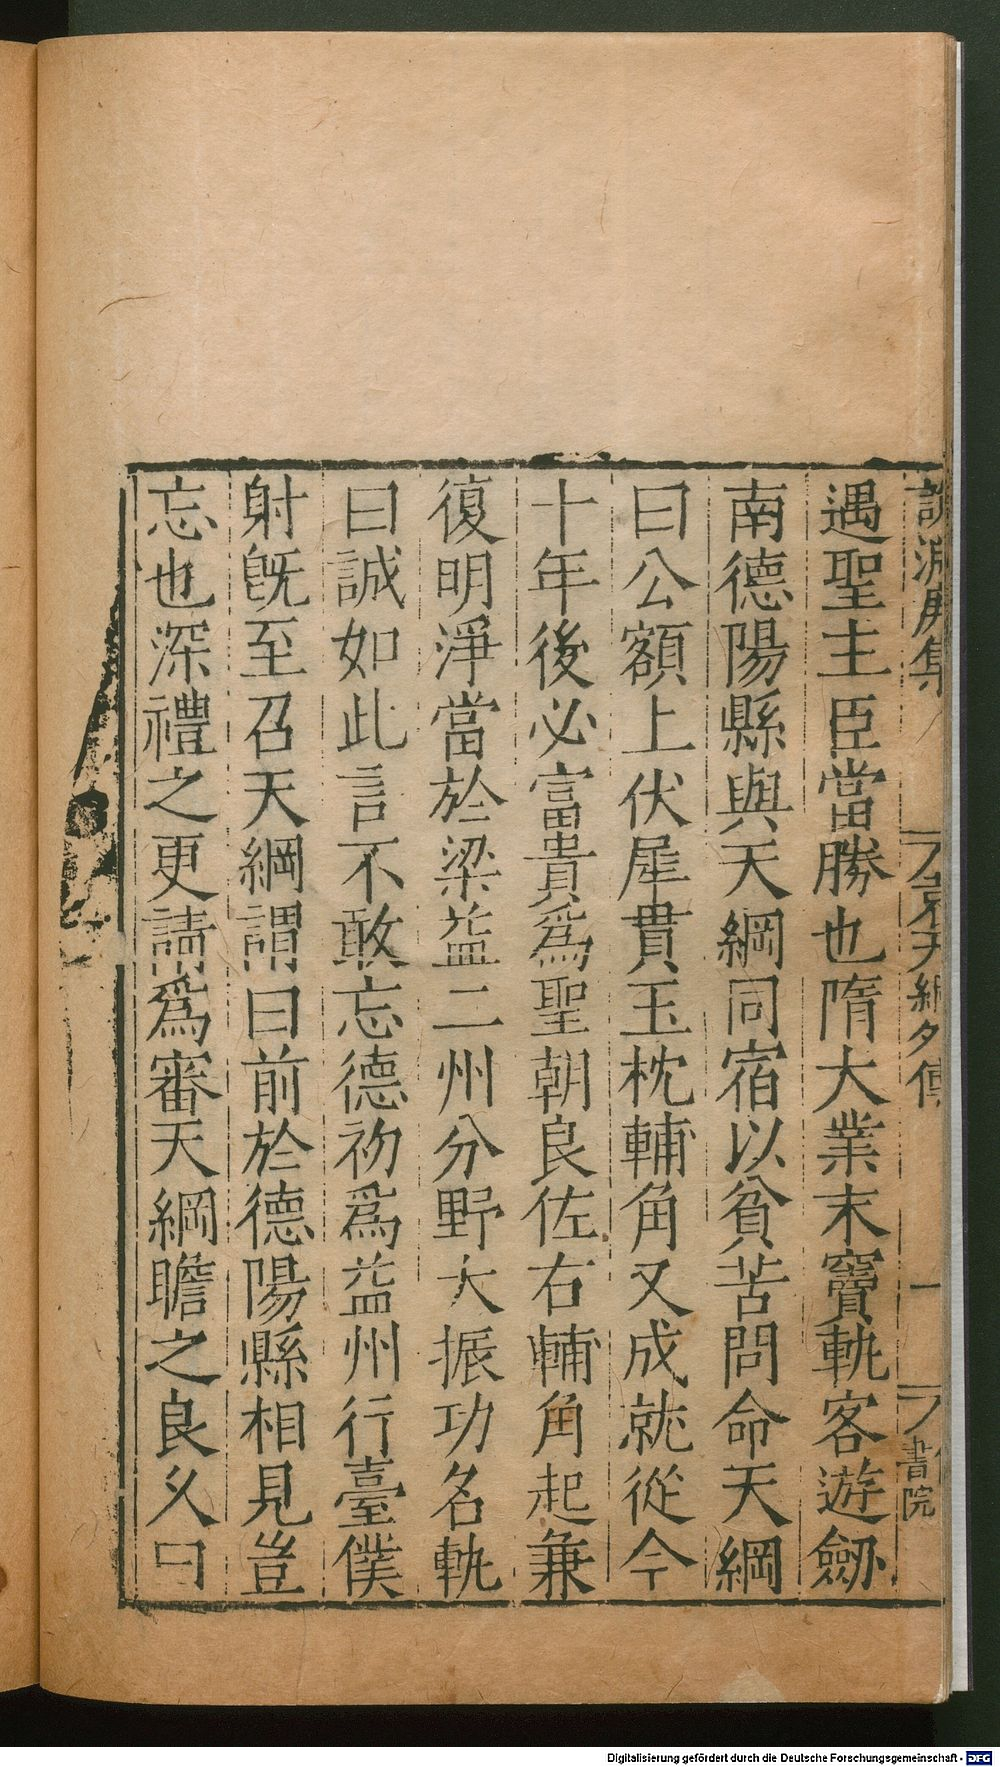 遇聖主臣當勝也隋大業末竇軌客遊劒
南德陽縣與天綱同宿以貧苦問命天綱
曰公額上伏犀貫玉枕輔角又成就從今
十年後必富貴爲聖朝良佐右輔角起兼
復明淨當於梁益二州分野大振功名軌
曰誠如此言不敢忘德初爲益州行臺僕
射旣至召天綱謂曰前於德陽縣相見豈
忘也深禮之更請爲審天綱瞻之良久曰
說淵庚集
袁天綱外傳
一
書院
Digitalisierung gefördert durch die Deutsche Forschungsgemeinschaft - DFG